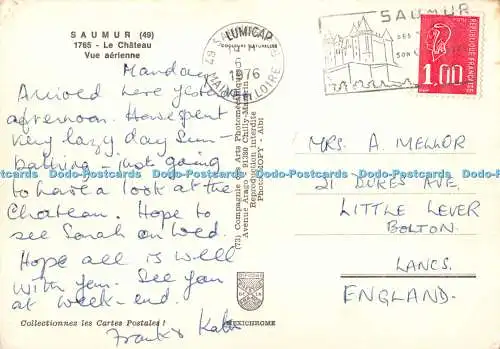 SAUMUR (49)
1765 - Le Château
Vue aérienne
LUMICAP
49 SAUMUR
6
1976
MAINE ET LOIRE
SAUMUR
SES
SON
REPUBLIQUE FRANCAISE
1,00
Monday
Arrived here yesterday
afternoon. Have spent
very lazy day Sun-
bathing - just going
to have a look at the
Chateau. Hope to
see Sarah on Wed.
Hope all is well
with you. See you
at week-end.
Frank & Kath
(73) Compagnie des Arts Photomécaniques
Avenue Arago 91380 Chilly-Mazarin
Reproduction Interdite
Photo "APA-POUX" - Albi
MRS. A. MELLOR
21 DUKES AVE,
LITTLE LEVER
BOLTON.
LANCS.
ENGLAND.
Collectionnez les Cartes Postales !
MEXICHROME
Dodo-Postcards Dodo-Postcards Dodo-Postcards Dodo-Postcards Dodo-Postcards